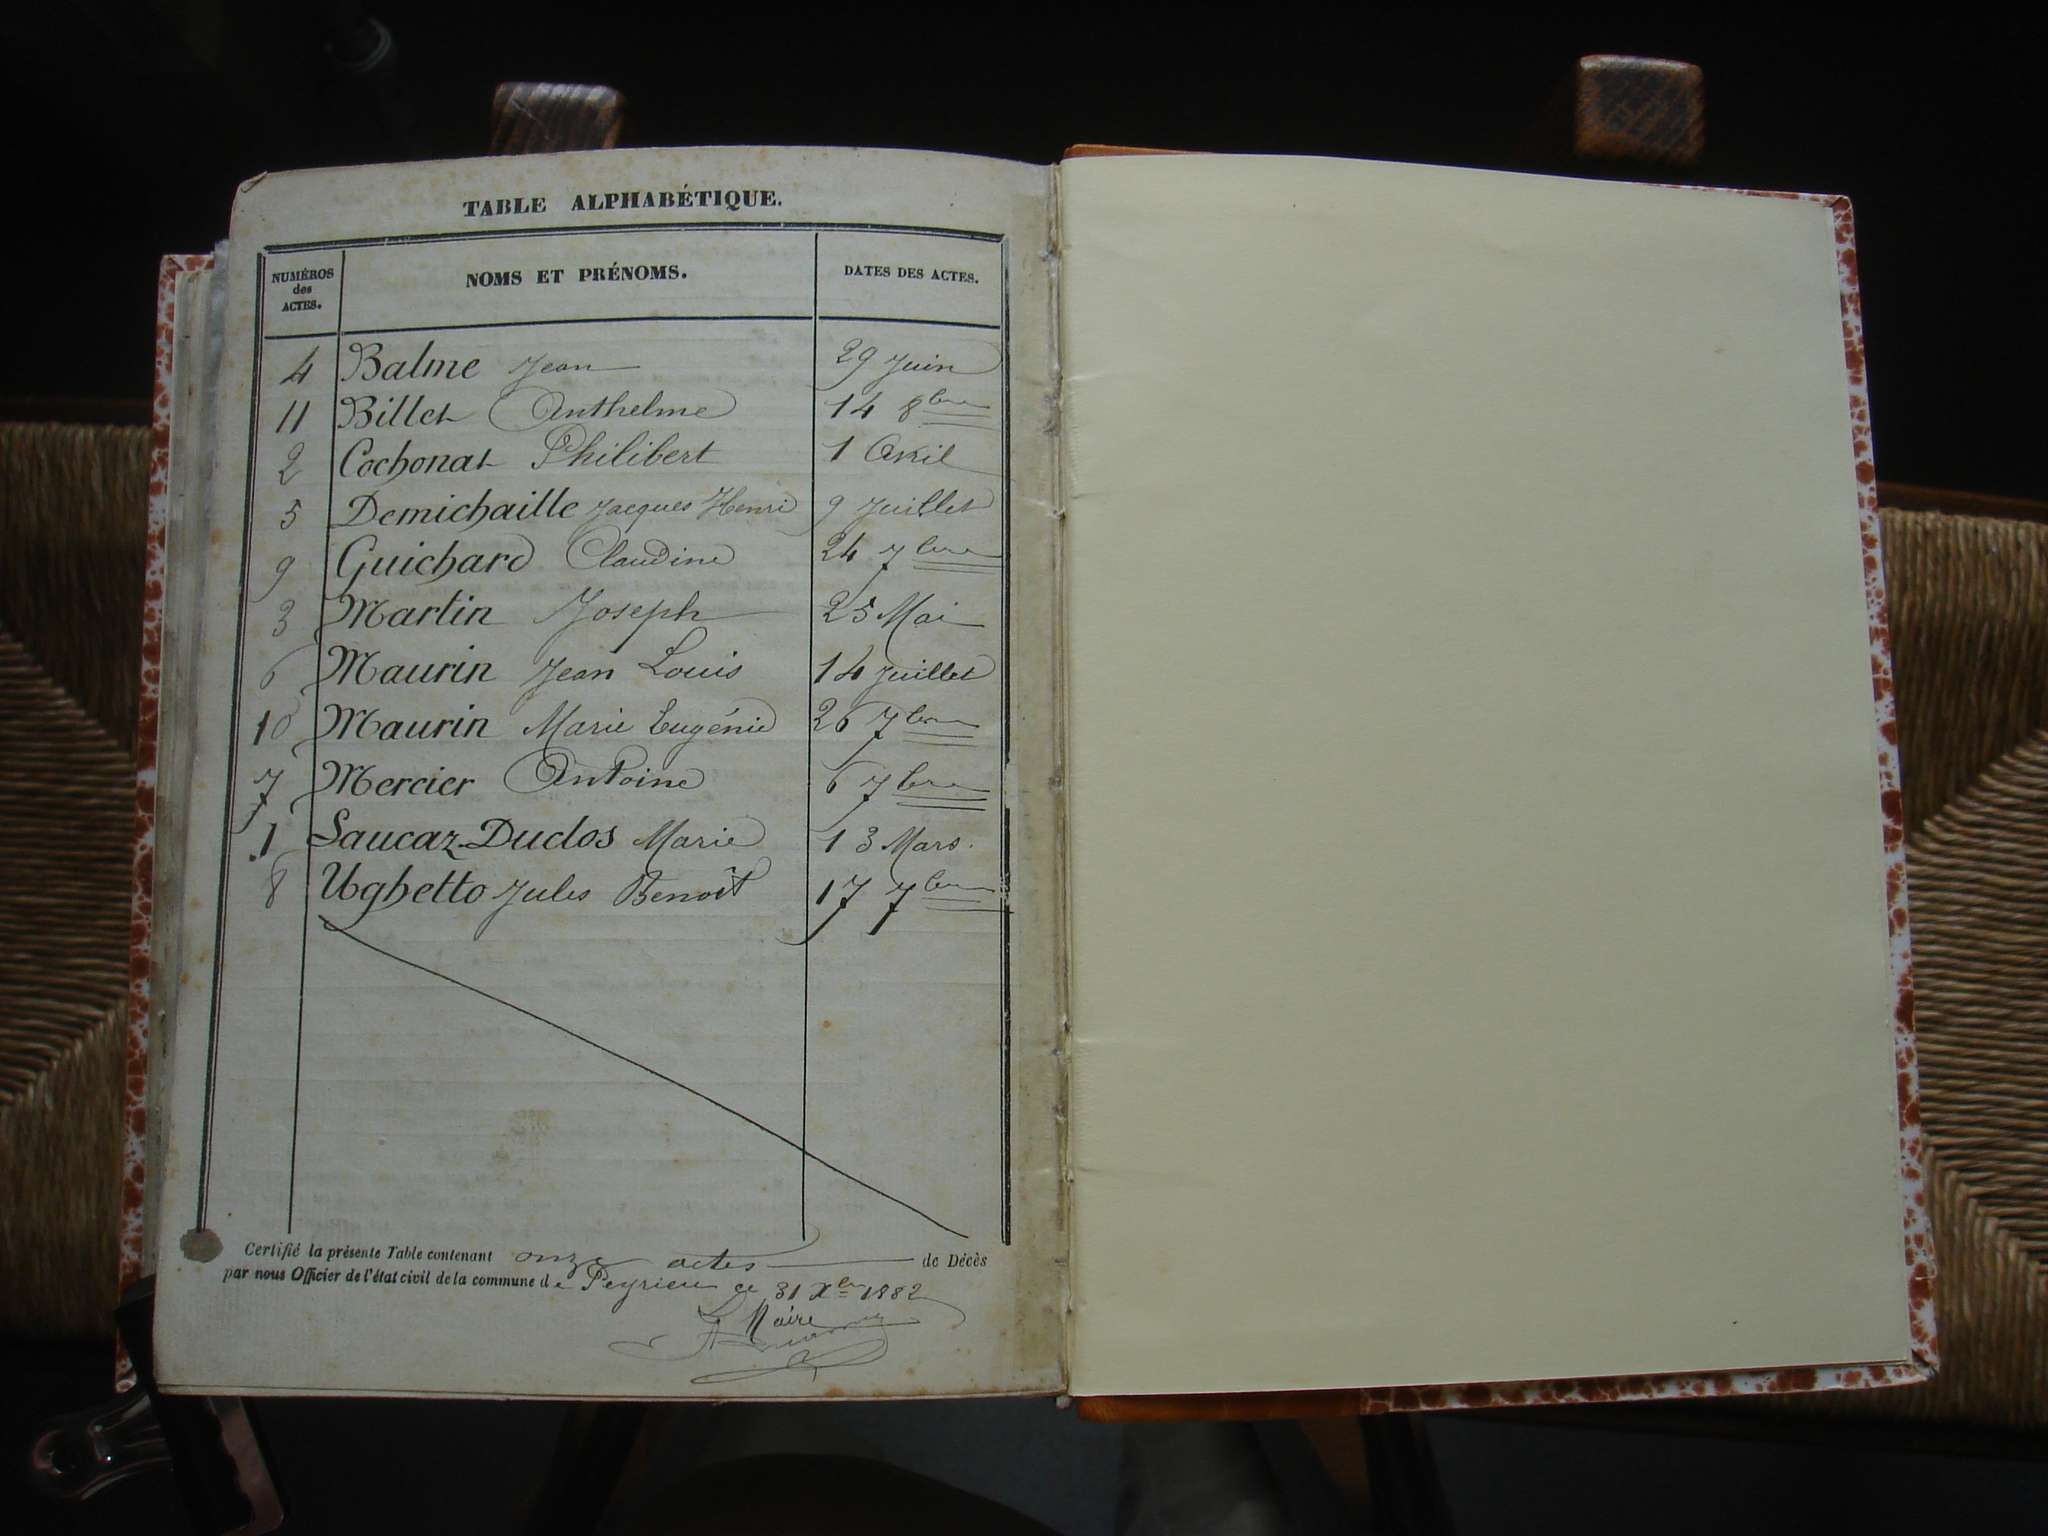 TABLE ALPHABÉTIQUE.
NUMÉROS des ACTES. NOMS ET PRÉNOMS. DATES DES ACTES.
4 Balme Jean 29 Juin
11 Billet Anthelme 14 8bre
2 Cochonat Philibert 1 Avril
5 Demichaille Jacques Henri 9 Juillet
9 Guichard Claudine 24 7bre
3 Martin Joseph 25 Mai
6 Maurin Jean Louis 14 Juillet
10 Maurin Marie Eugénie 26 7bre
7 Mercier Antoine 6 7bre
1 Saucaz-Duclos Marie 13 Mars.
8 Ughetto Jules Benoît 17 7bre
Certifié la présente Table contenant onze actes de Décès
par nous Officier de l'état civil de la commune de Peyrieu ce 31 Xbre 1882
Le Maire